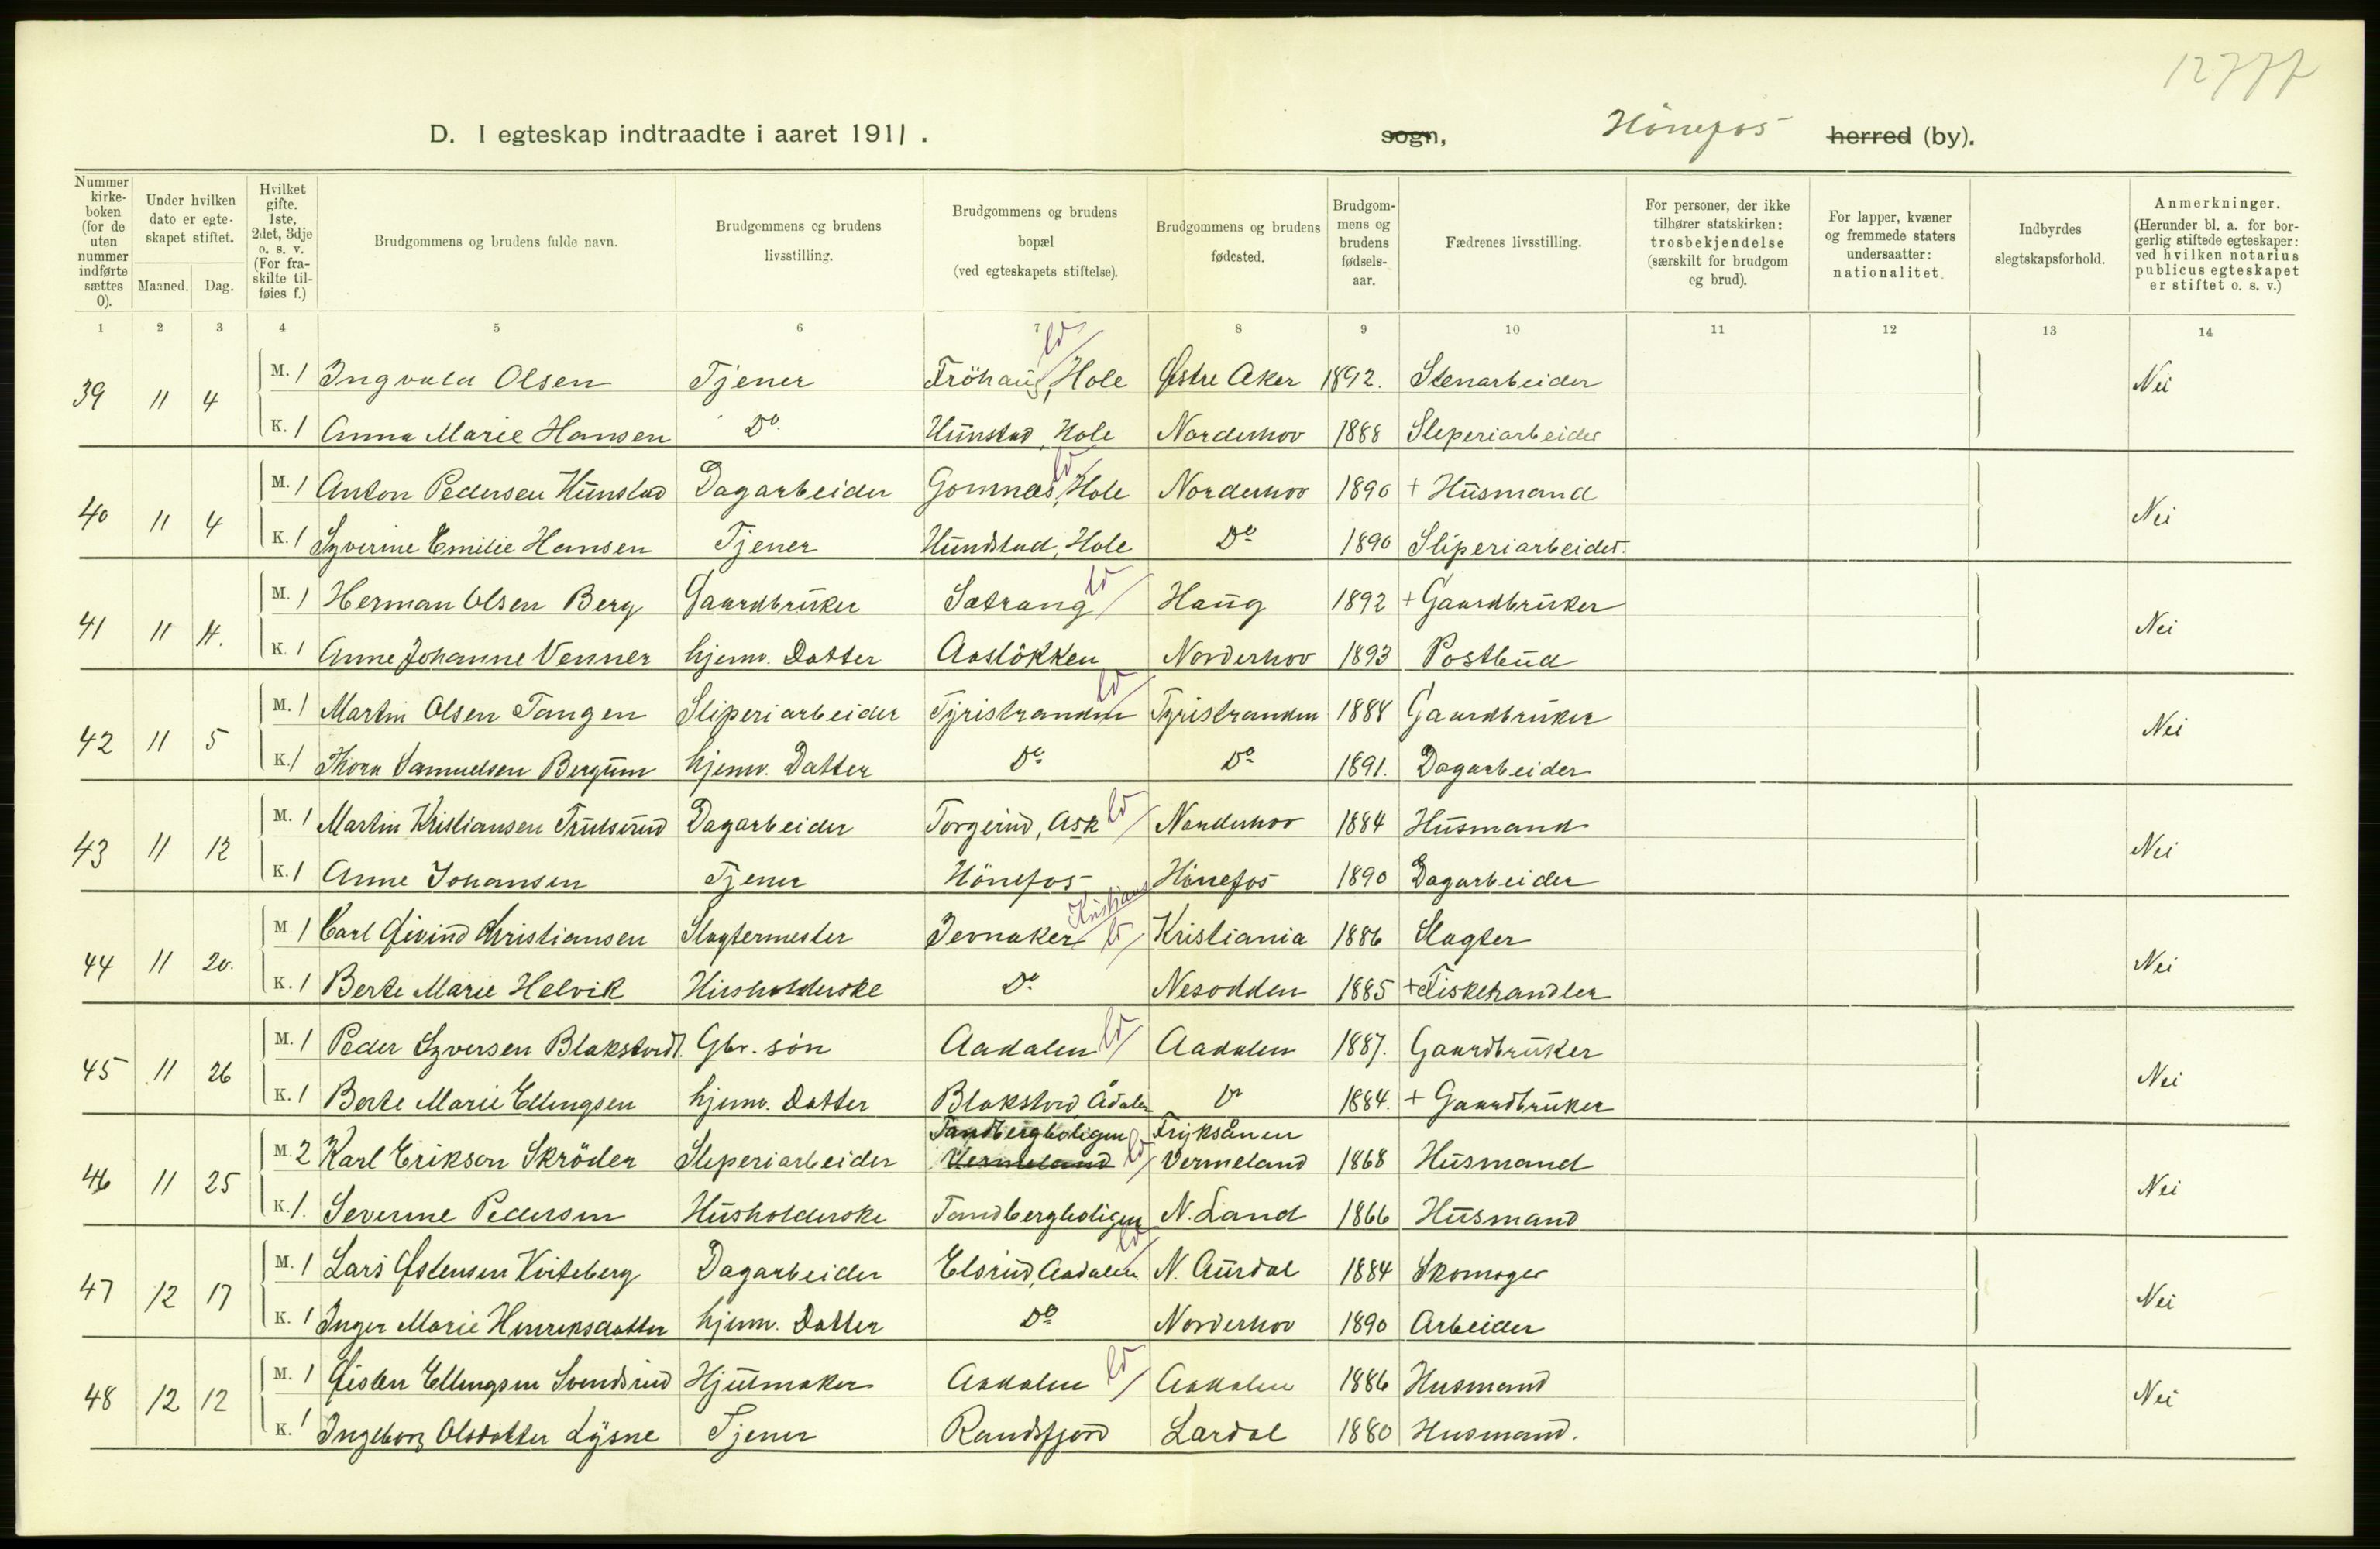 12777
D. I egteskap indtraadte i aaret 1911.
sogn, Hönefos herred (by).
Nummer kirkeboken (for de uten nummer indførte sættes 0).
Under hvilken dato er egteskapet stiftet.
Maaned. Dag.
Hvilket gifte. 1ste, 2det, 3dje o. s. v. (For fraskilte tilføies f.)
Brudgommens og brudens fulde navn.
Brudgommens og brudens livsstilling.
Brudgommens og brudens bopæl (ved egteskapets stiftelse).
Brudgommens og brudens fødested.
Brudgommens og brudens fødselsaar.
Fædrenes livsstilling.
For personer, der ikke tilhører statskirken: trosbekjendelse (særskilt for brudgom og brud).
For lapper, kvæner og fremmede staters undersaatter: nationalitet.
Indbyrdes slegtskapsforhold.
Anmerkninger. (Herunder bl. a. for borgerlig stiftede egteskaper: ved hvilken notarius publicus egteskapet er stiftet o. s. v.)
1 2 3 4 5 6 7 8 9 10 11 12 13 14
39 11 4 M. 1 Ingvald Olsen Tjener Fröhaug, Hole Østre Aker 1892. Stenarbeider Nei
K. 1 Anna Marie Hansen Do. Hunstad, Hole Norderhov 1888 Sliperiarbeider
40 11 4 M. 1 Anton Pedersen Hunstad Dagarbeider Gomnæs, Hole Norderhov 1890 + Husmand Nei
K. 1 Syverine Emilie Hansen Tjener Hundstad, Hole Do 1890 Sliperiarbeider.
41 11 4. M. 1 Herman Olsen Berg Gaardbruker Sætrang Haug 1892 + Gaardbruker Nei
K. 1 Anne Johanne Venner hjemv. Datter Aaslökken Norderhov 1893 Postbud
42 11 5 M. 1 Martin Olsen Tangen Sliperiarbeider Tyristranden Tyristranden 1888 Gaardbruker Nei
K. 1 Thora Samuelsen Bergum hjemv. Datter Do Do 1891. Dagarbeider
43 11 12 M. 1 Martin Kristiansen Trulserud Dagarbeider Torgerud, Ask Norderhov 1884 Husmand Nei
K. 1 Anne Johansen Tjener Hönefos Hönefos 1890 Dagarbeider
Kristiania
44 11 20. M. 1 Carl Øivind Christiansen Slagtermester Jevnaker Kristiania 1886 Slagter Nei
K. 1 Berte Marie Helvik Husholderske Do Nesodden 1885 + Fiskehandler
45 11 26 M. 1 Peder Syversen Blakstvedt. Gbr. søn Aadalen Aadalen 1887. Gaardbruker Nei
K. 1 Berte Marie Ellingsen hjemv. Datter Blakstved, Ådalen Do 1884. + Gaardbruker
Tandbergboligen Fryksånen
46 11 25 M. 2 Karl Erikson Skröder Sliperiarbeider Vermeland Vermeland 1868 Husmand Nei
K. 1. Severine Pedersen Husholderske Tandbergboligen N. Land 1866 Husmand
47 12 17 M. 1 Lars Østensen Kviteberg Dagarbeider Elsrud, Aadalen N. Aurdal 1884 Skomager Nei
K. 1 Inger Marie Henriksdatter hjemv. Datter Do Norderhov 1890 Arbeider
48 12 12 M. 1 Øisten Ellingsen Svendsrud Hjulmaker Aadalen Aadalen 1886 Husmand Nei
K. 1 Ingeborg Olsdatter Lysne Tjener Randsfjord Lærdal 1880 Husmand.